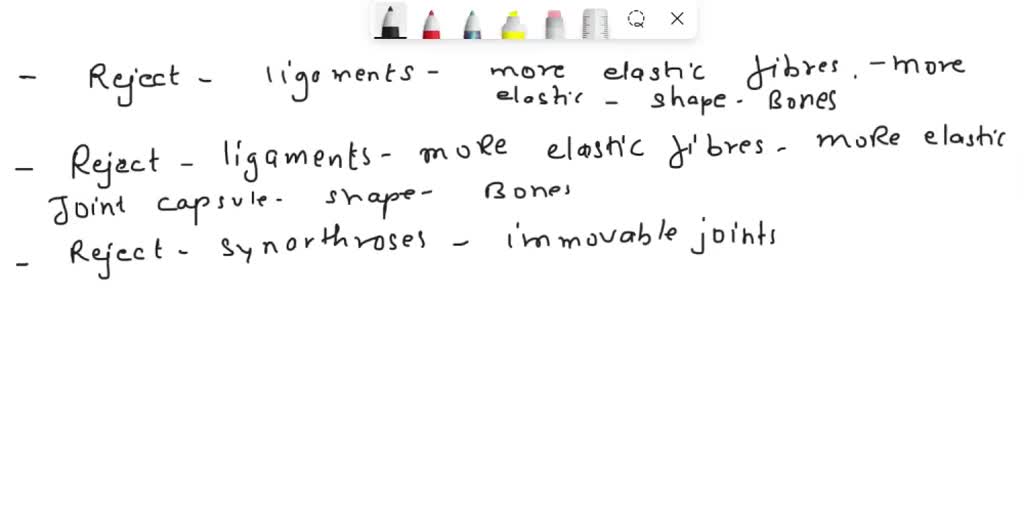 - Reject - ligaments - more elastic fibres. - more
elastic - shape - Bones
- Reject - ligaments - more elastic fibres - more elastic
Joint capsule - shape - Bones
- Reject - synorthroses - immovable joints